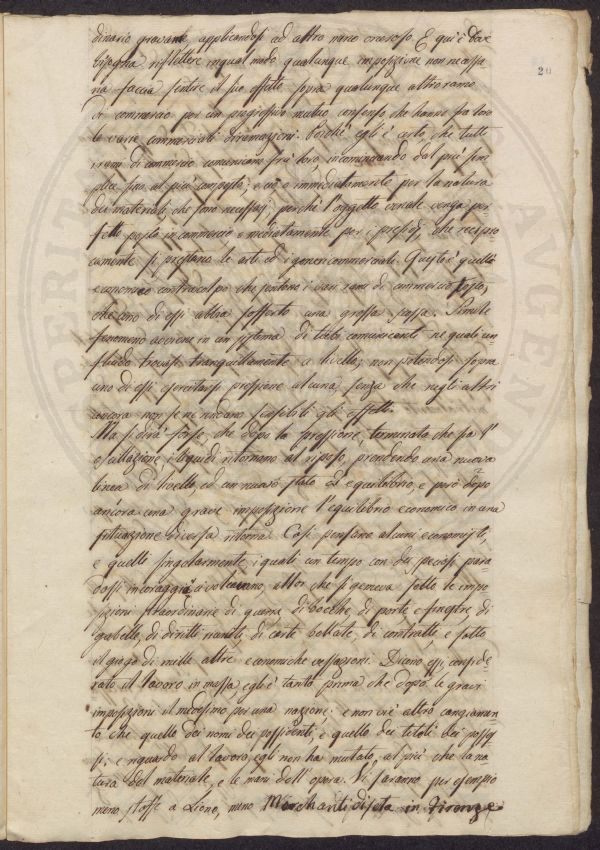 20
dinario gravame, applicandosi ad altro meno oneroso. E qui è dove
bisogna riflettere in qual modo qualunque imposizione non necessa
ria faccia sentire il suo effetto sopra qualunque altro ramo
di commercio per un progressivo mutuo consenso che hanno fra loro
le varie commerciali diramazioni. Perché egli è certo che tutti
i rami di commercio comunicano fra loro, incominciando dal più sem
plice sino al più composto; e ciò o immediatamente per la natura
dei materiali che sono necessarj, perché l'oggetto venale venga per
fetto posto in commercio o mediatamente per i presidj, che recipro
camente si prestano le arti ed i generi commerciali. Questo è quello
economico contracolpo che sentono i varj rami di commercio tosto,
che uno di essi abbia sofferto una grossa tassa. Simile
fenomeno avviene in un sistema di tubi comunicanti ne quali un
fluido trovasi tranquillamente a livello; non potendosi sopra
uno di essi esercitarsi pressione alcuna senza che negli altri
ancora non se ne rendano sensibili gli effetti.
Ma si dirà forse, che dopo la pressione, terminata che sia l'
oscillazione i liquidi ritornano al riposo, prendendo una nuova
linea di livello, ed un nuovo stato di equilibrio, e però dopo
ancora una grave imposizione l'equilibrio economico in una
situazione diversa ritorna. Così pensano alcuni economisti,
e quelli singolarmente i quali un tempo con dei speciosi para
dossi incoraggiavano, allor che si gemeva sotto le impo
sizioni straordinarie di guerra di bocche, di porte e finestre, di
gabelle, di diritti riuniti, di carte bollate, di contratti, e sotto
il giogo di mille altre economiche vessazioni. Dicono essi, conside
rato il lavoro in massa egli è tanto prima che dopo le gravi
imposizioni il medesimo per una nazione: e non vi è altro cangiamen
to che quello dei nomi dei possidenti, e quello dei titoli dei posses
si; e riguardo al lavoro egli non ha mutato, al più che la na
tura del materiale, e le mani dell'opera. Vi saranno per esempio
meno stoffe a Lione, meno Mercanti di seta in Firenze